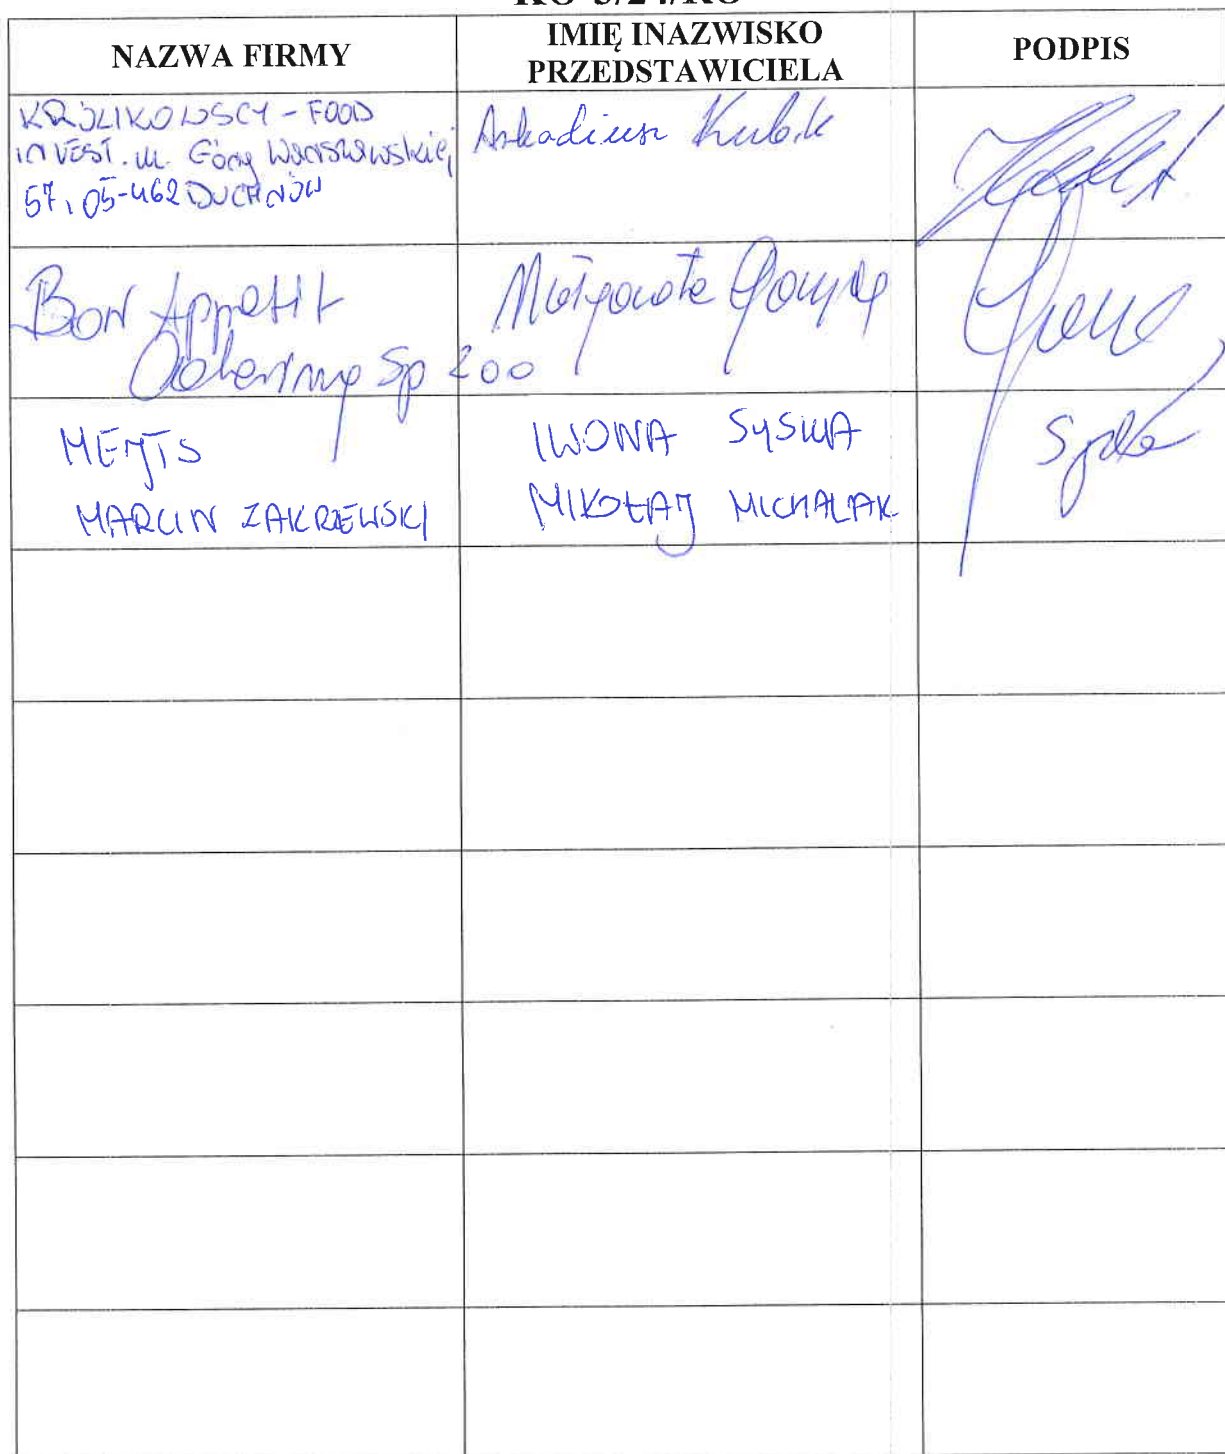 NAZWA FIRMY
IMIĘ INAZWISKO
PRZEDSTAWICIELA
PODPIS
KRÓLIKOWSCY - FOOD
INVEST. ul. Góry Warszawskiej
57, 05-462 DUCHNÓW
Arkadiusz Kubik
Bon Appetit
Catering Sp zoo
Małgorzata
MARCIN ZAKRZEWSKI
IWONA
MIKOŁAJ MICHALAK